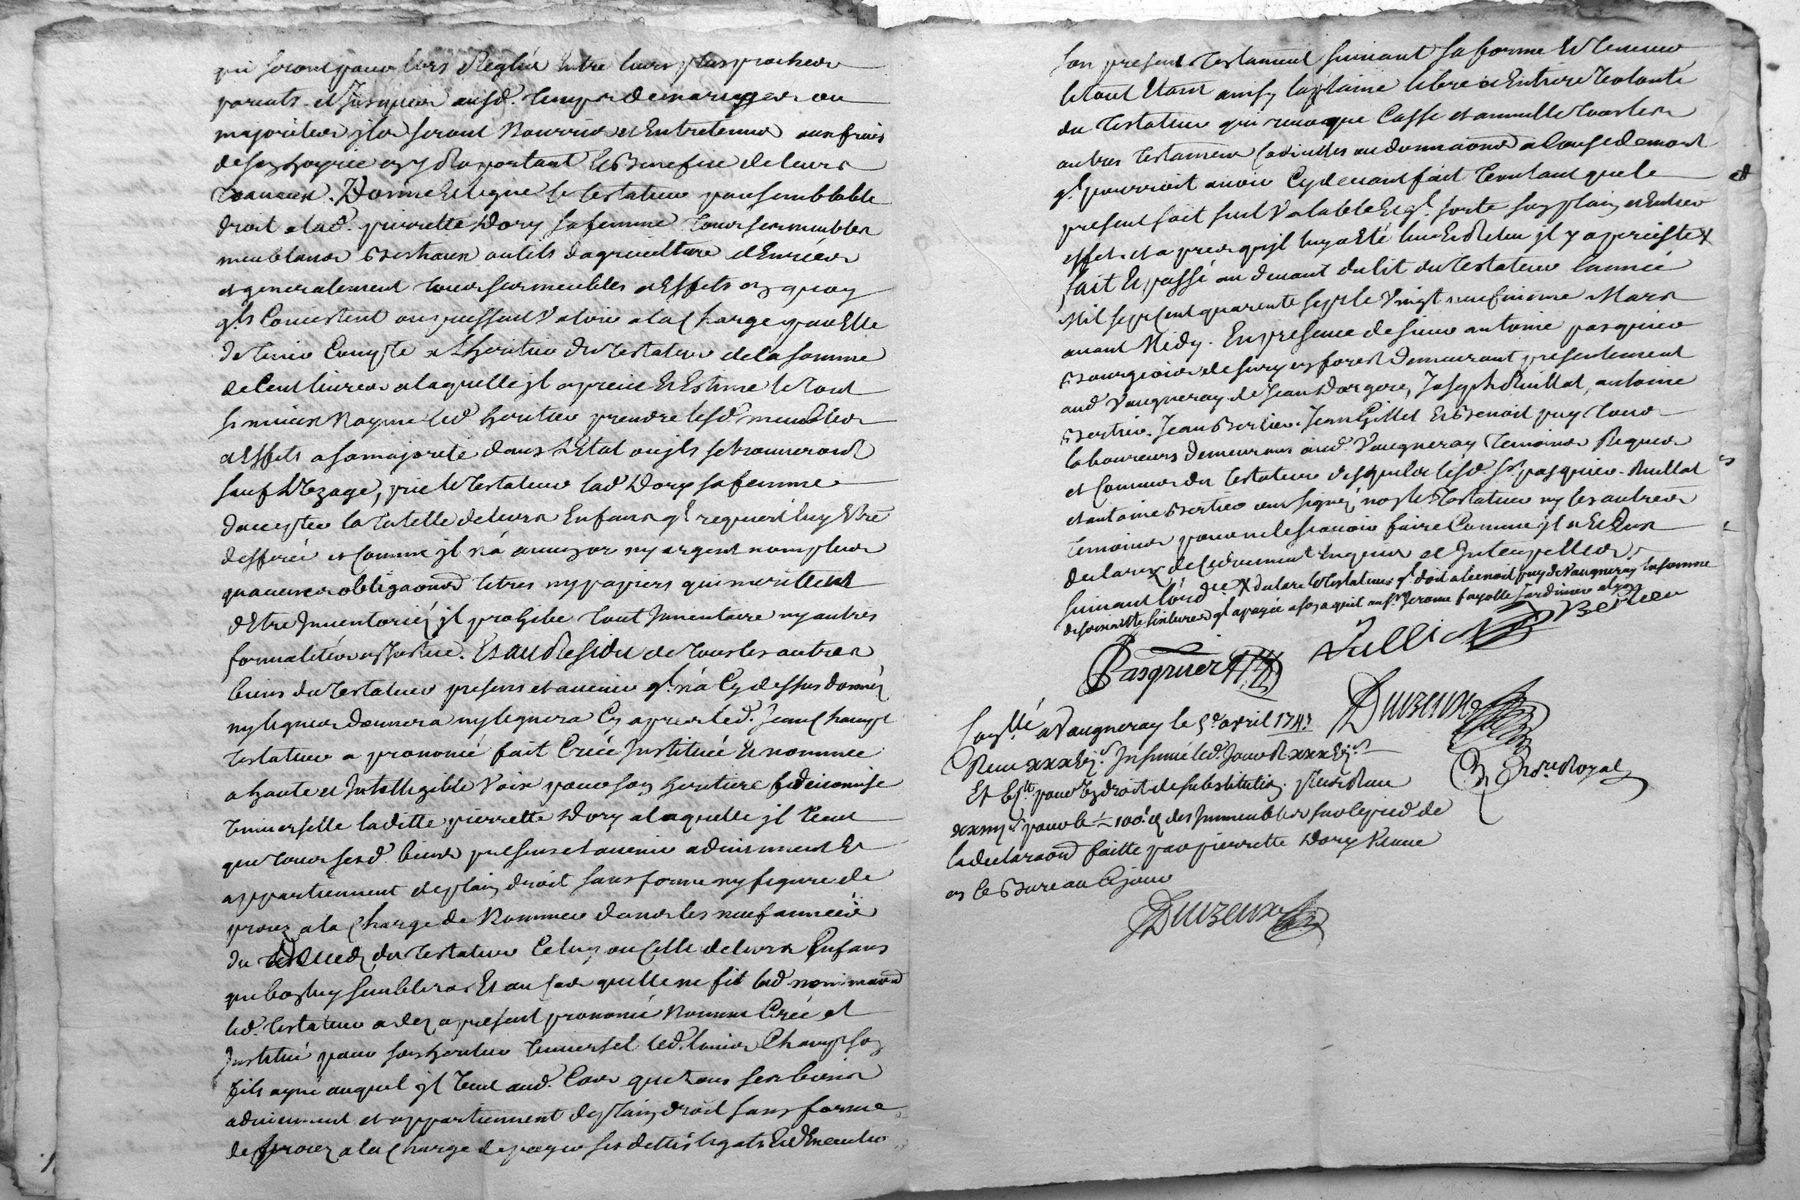 qui seront pour lors Reglée entre leurs plus proches
parents et Jusques ausd. temps de mariages ou
majorités ils seront Nourris et Entretenus aux frais
de son hoyrie en y Raportant le Benefice de leurs
travaux. Donne et legue le testateur par semblable
droit a lad. pierrette Dory sa femme tous ses meubles
meublans Bestiaux outils dagriculture denrées
et generalement tous ses meubles et Effets en quoy
qls Concistent ou puissent valoir a la Charge par Elle
de tenir Compte a Lheritier du testateur de la somme
de Cent livres a laquelle jl aprecie et Estime le tout
si mieux Nayme led heritier prendre lesd. meubles
et Effets a sa majorité dans L'Etat ou jls se trouveront
sauf L'uzage, prie le testateur lad Dory sa femme
daccepter la tutelle de leurs Enfans ql requiert luy Etre
defferée et Comme jl n'a aucun or ny argent non plus
quaucunes obligaonds titres ny papiers qui meritent
d'Etre Inventoriés jl prohibe tout Inventaire ny autres
formalités de Justice. Et au Residu de tous les autres
biens du testateur presens et avenir ql n'a Cy dessus donnés
ny legués donnera ny leguera Cy apres led. Jean Champt
testateur a prononcé fait Créé Institué et nommé
a haute et Intelligible Voix pour son heritiere fideicomise
universelle laditte pierrette Dory a laquelle jl veut
que tous sesd. biens presens et avenir adviennent et
appartiennent de plain droit sans forme ny figure de
procez a la Charge de Nommer dans les neuf années
du deced du testateur Celuy ou Celle de leurs Enfans
que bon luy semblera Et au Cas quelle ne fit lad nominaond
led. testateur a dez a present prononcé Nommé Créé et
Institué pour son heritier universel led. Champt son
fils ayné auquel jl veut aud. Cas que tous ses biens
adviennent et appartiennent de plain droit sans forme
de procez a la Charge de payer ses dettes legats Et d'Executer
son present testament suivant sa forme et teneur
le tout Etant ainsy la plaine libre et Entiere volonté
du testateur qui revoque Casse et annulle tous les
autres testaments Codicilles ou donnaonds a Cause de mort
ql pourroit avoir Cy devant fait voulant que le
present soit seul Valable et ql sorte son plain et Entier
effet et apres quil luy a Eté lu et Relu jl y a persisté X
fait et passé au devant du lit du testateur lannée
Mil sept Cent quarente sept le Vingt neufvieme Mars
avant Midy. En presence de sieur antoine pasquier
Bourgeois de Sury en forest demeurant presentement
aud Vaugneray, de Jean Dorgere, Joseph Ruillat, antoine
Bertier. Jean Bertier. Jean Gillet et Benoit puy tous
laboureurs demeurans aud. Vaugneray temoins Requis
et Connus du testateur desquels lesd. Sr pasquier Ruillat
et antoine Bertier ont signé, non le testateur ny les autres
temoins pour ne le scavoir faire Comme jl a Et Eux
declaré de Ce duement Enquis et Interpelles
suivant l'ord.ce X declare le testateur ql doit a benoit puy de Vaugneray la somme
de soixante livres ql a payée a son aquit au Sr Jerome fayolle Jardinier a lyon
Pasquier Rullia Bertier
Duvzeux
Nre Royal
Conllé a Vaugneray le 5e avril 1747
Reçu xxx Insinué led. Jour R xxx
Et pour le droit de substitution. plus Reçu
pour le 100e d. des Immeubles sur le pied de
la declaraond faitte par pierrette Dory Veuve
en Ce Bureau Ce jour
Duvzeux